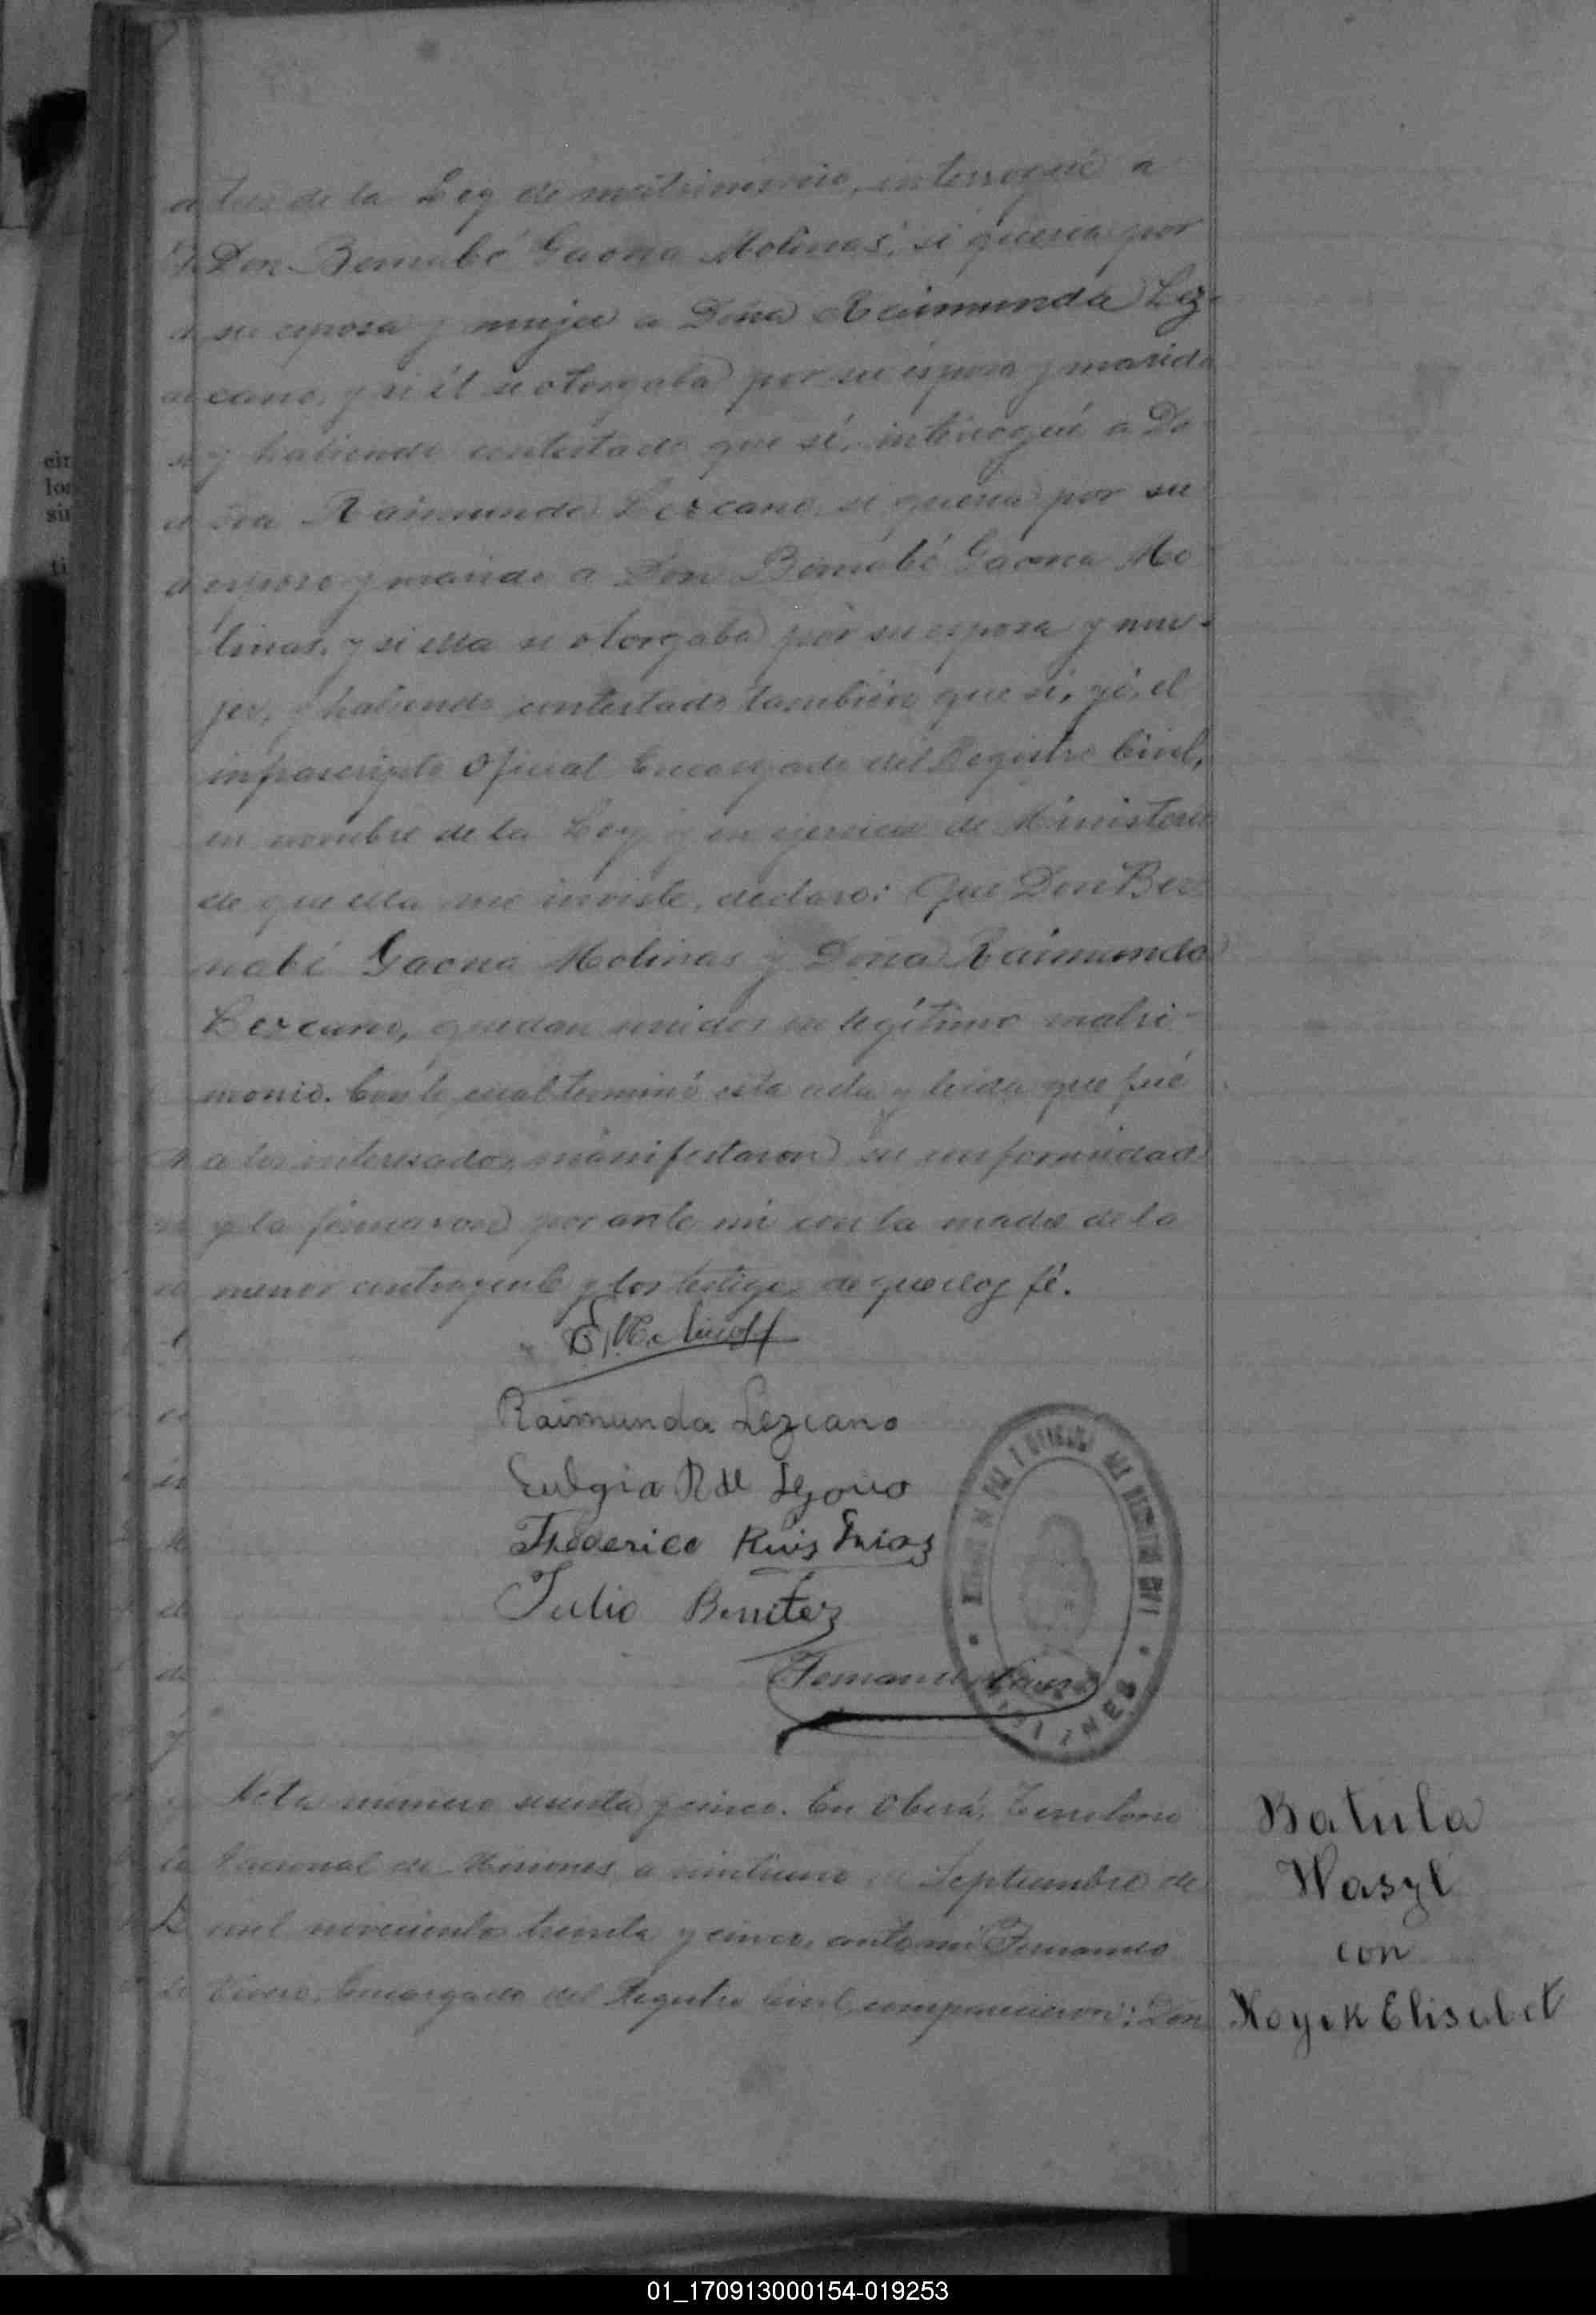 de la Ley de matrimonio, interrogué a
Don Bernabé Gaona Molinas, si queria por
su esposa y mujer a Doña Raimunda Lez-
cano, y si él se otorgaba por su esposo y marido
y habiendo contestado que sí, interrogué a Do-
Raimunda Lezcano, si queria por su
esposo y marido a Don Bernabé Gaona Mo-
linas, y si ella se otorgaba por su esposa y mu-
jer, y habiendo contestado también que si, yó, el
infrascripto Oficial Encargado del Registro Civil,
en nombre de la Ley y en ejercicio de Ministerio
de que ella me inviste, declaro: Que Don Ber
nabé Gaona Molinas y Doña Raimunda
Lezcano, quedan unidos en legítimo matri-
monio. Con lo cual terminó esta acta y leida que fué
a los interesados manifestaron su conformidad
y la firmaron por ante mi con la madre de la
menor contrayente y los testigos de que doy fé.
Raimunda Lezcano
Ruis
Julio Benitez
Acta número sesenta y cinco. En Oberá, Territorio
Nacional de Misiones, a veintiuno de Septiembre de
mil novecientos treinta y cinco, ante mi Fernando
Vivero, Encargado del Registro Civil, comparecieron: Don
Batula
Waszl
con
Koyek Elisabet
cir
lor
sin
ti
01_170913000154-019253